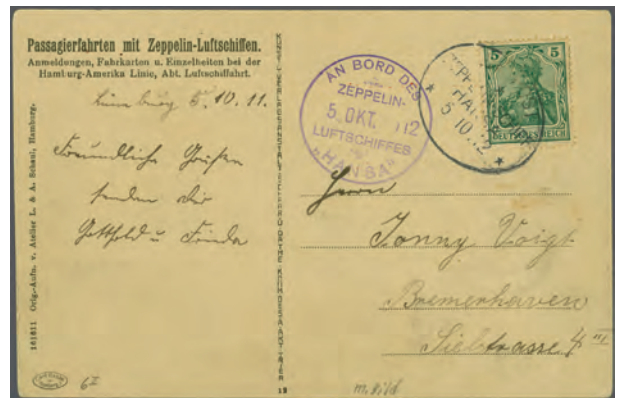 Passagierfahrten mit Zeppelin-Luftschiffen.
Anmeldungen, Fahrkarten u. Einzelheiten bei der
Hamburg-Amerika Linie, Abt. Luftschiffahrt.
5.10.11.
Freundliche Grüßen
senden dir
Gotthold u. Frieda
161811 Orig.-Aufn. v. Atelier L. & A. Schaul, Hamburg.
AN BORD DES
ZEPPELIN-
5. OKT. 12
LUFTSCHIFFES
„HANSA"
5 10 12
5 5
DEUTSCHES REICH
Herrn
Jonny Voigt
Bremerhaven
Sielstrasse 4 III
62
18
m. Bild